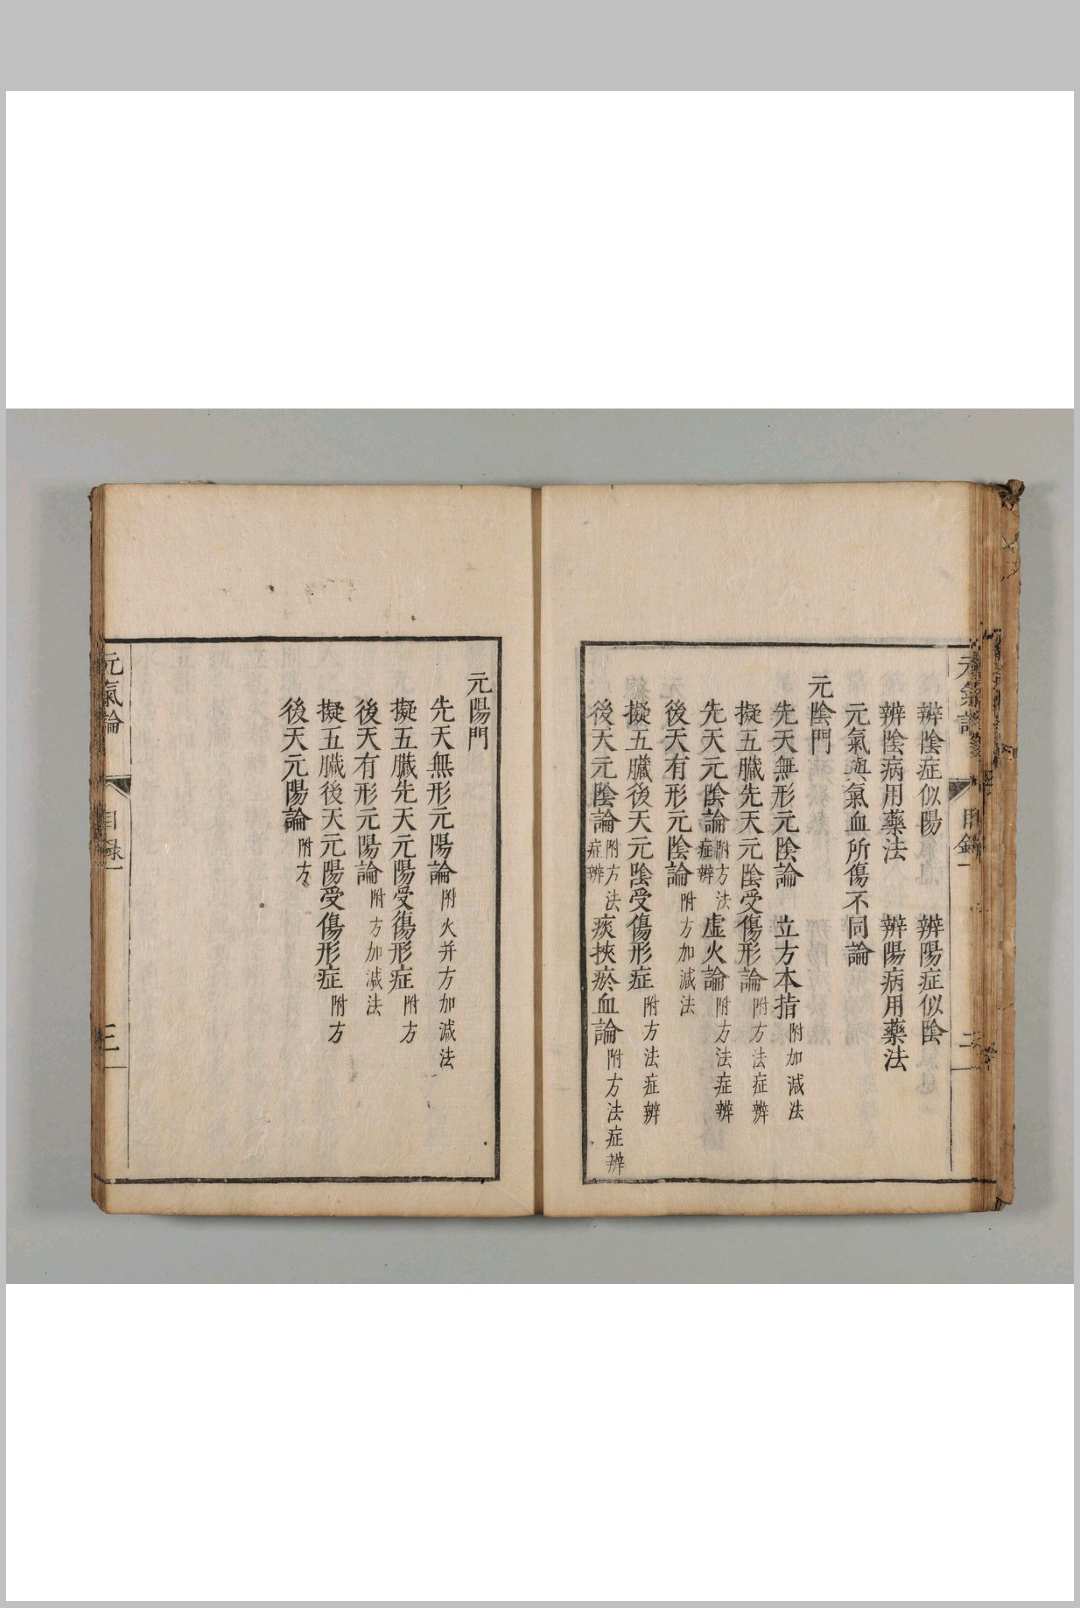 辨陰症似陽　辨陽症似陰
辨陰病用藥法　辨陽病用藥法
元氣與氣血所傷不同論
元陰門
先天無形元陰論　立方本指附加減法
擬五臟先天元陰受傷形論附方法症辨
先天元陰論附方法症辨虛火論附方法症辨
後天有形元陰論附方加減法
擬五臟後天元陰受傷形症附方法症辨
後天元陰論附方法症辨痰挾瘀血論附方法症辨
元陽門
先天無形元陽論附火并方加減法
擬五臟先天元陽受傷形症附方
後天有形元陽論附方加減法
擬五臟後天元陽受傷形症附方
後天元陽論附方
元氣論　目録　三